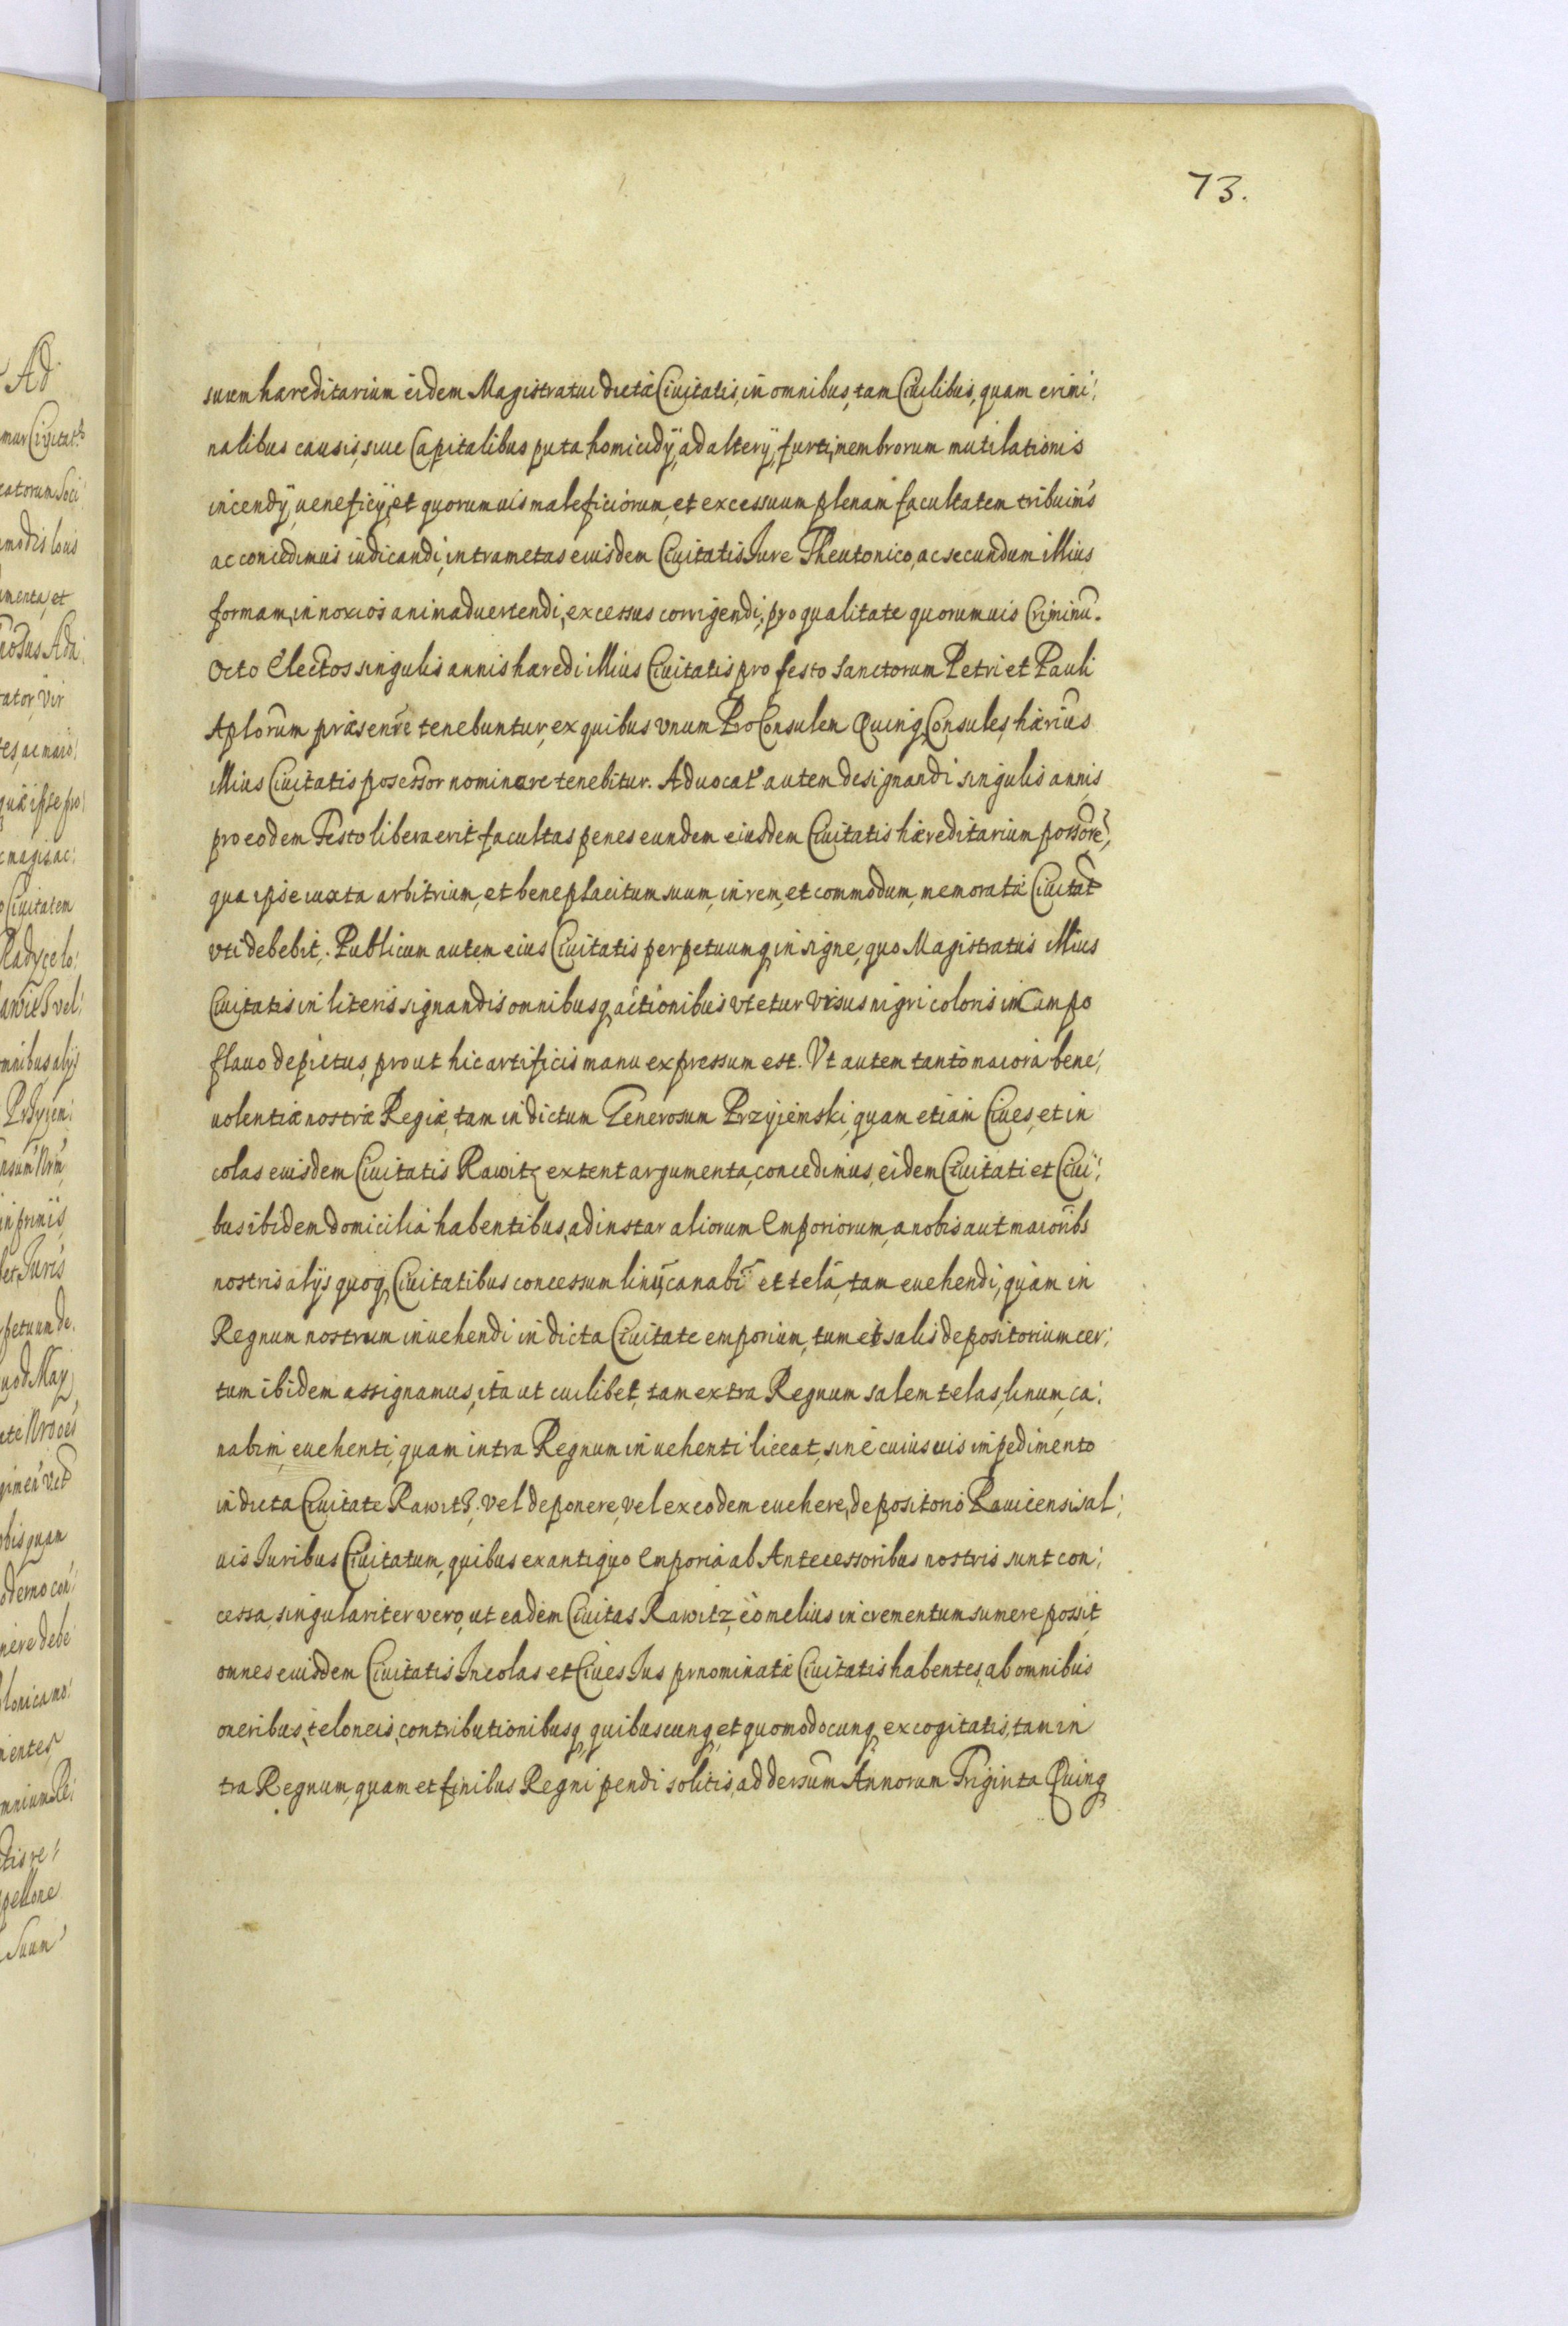 73.
suum hareditarium eidem Magistratui dictæ Ciuitatis, in omnibus, tam Ciuilibus, quam crimi:
nalibus causis, siue Capitalibus puta homicidÿ, adalterÿ, furti, membrorum mutilationis
incendÿ, ueneficÿ, et quorumuis maleficiorum, et excessuum plenam facultatem tribuim̃s
ac concedimus iudicandi, intra metas eiusdem Ciuitatis Jure Theutonico, ac secundum illius
formam, in noxios animaduertendi, excessus corrigendi, pro qualitate quorumuis Criminũ.
Octo Electos singulis annis haredi illius Ciuitatis pro festo Sanctorum Petri et Pauli
Aplorum præsen̄re tenebuntur, ex quibus vnum ProConsulem Quinq, Consules, hærius
illius Ciuitatis posessor nominare tenebitur. Aduocat autem designandi singulis annis
pro eodem Festo libera erit facultas penes eundem eiusdem Ciuitatis hæreditarium possorẽ,
qua ipse iuxta arbitrium, et beneplacitum suum, in rem, et commodum, memoratæ Ciuitat
vti debebit. Publicum autem eius Ciuitatis perpetuumq, insigne, quo Magistratus illius
Ciuitatis in literis signandis omnibusq, actionibus vtetur Vrsus nigri coloris in Campo
flauo depictus, prout hic artificis manu expressum est. Vt autem tanto maiora bene:
uolentiæ nostræ Regiæ, tam in dictum Generosum Przyjemski, quam etiam Ciues, et in
colas eiusdem Ciuitatis Rawitz extent argumenta, concedimus, eidem Ciuitati et Ciui:
bus ibidem domicilia habentibus, ad instar aliorum Emporiorum, a nobis aut maioribs
nostris alÿs quoq, Ciuitatibus concessum linũ, canabĩ et telã, tam euehendi, quam in
Regnum nostrum inuehendi in dicta Ciuitate emporium, tum et salis depositorium cer:
tum ibidem assignamus, ita ut cuilibet, tam extra Regnum salem telas, linum, ca:
nabim, euehenti, quam intra Regnum inuehenti liceat, sine cuiusuis impedimento
in dicta Ciuitate Rawitz. vel deponere, vel ex eodem euehere, depositorio Rauicensi sal:
uis Juribus Ciuitatum, quibus ex antiquo emporia ab Antecessoribus nostris sunt con:
cessa, singulariter vero, ut eadem Ciuitas Rawitz, eo melius incrementum sumere possit
omnes eiusdem Ciuitatis Incolas et Ciues Jus prnominatæ Ciuitatis habentes, ab omnibus
oneribus, teloneis, contributionibusq, quibuscunq, et quomodocunq, excogitatis, tam in
tra Regnum, quam et finibus Regni pendi solitis, ad dersum Annorum Triginta Quinq